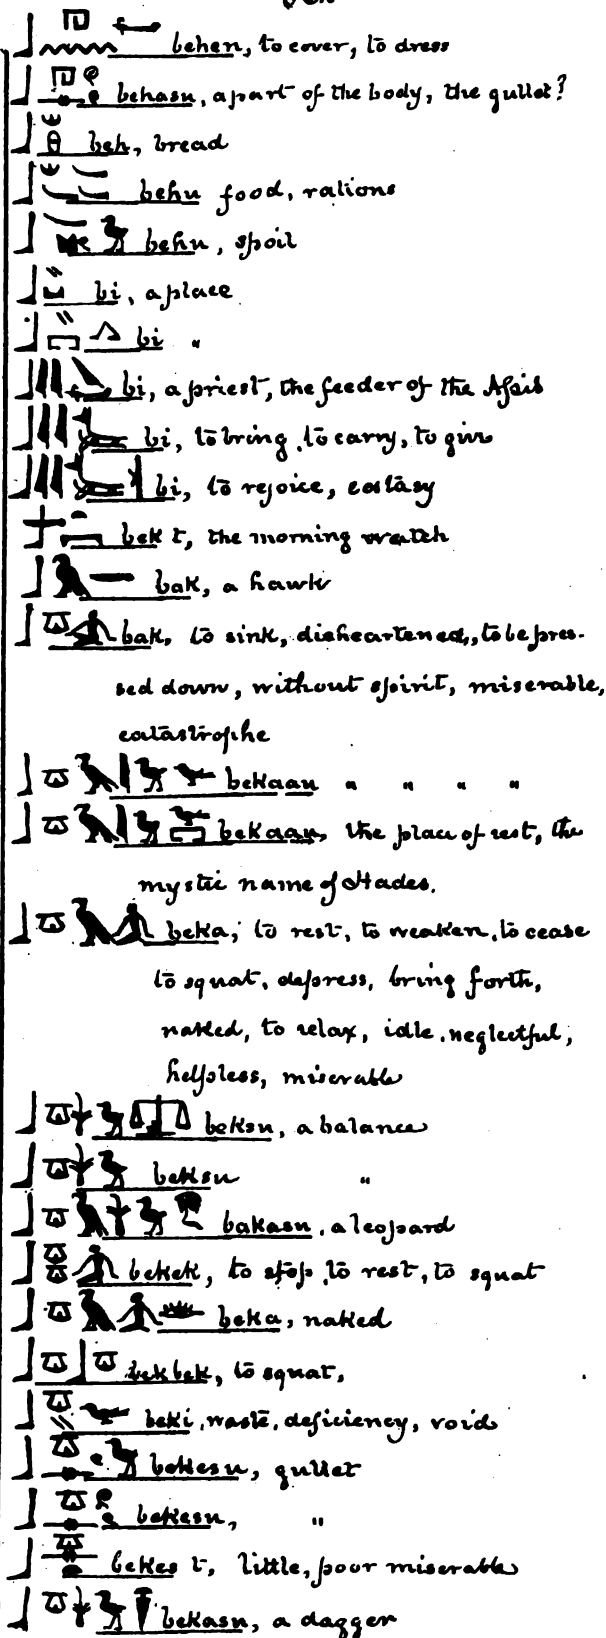 behen, to cover, to dress
behasu, a part of the body, the gullet?
beh, bread
behu food, rations
behu, spoil
bi, a place
bi "
bi, a priest, the feeder of the Apis
bi, to bring, to carry, to give
bi, to rejoice, extasy
bek t, the morning watch
bak, a hawk
bak, to sink, disheartened, to be pres-
sed down, without spirit, miserable,
catastrophe
bekaau " " " "
bekaau, the place of rest, the
mystic name of Hades.
beka, to rest, to weaken, to cease
to squat, depress, bring forth,
naked, to relax, idle, neglectful,
helpless, miserable
beksu, a balance
beksu "
bakasu, a leopard
bekek, to stop, to rest, to squat
beka, naked
bekbek, to squat,
beki, waste, deficiency, void
bekesu, gullet
bekesu, "
bekes t, little, poor miserable
bekasu, a dagger